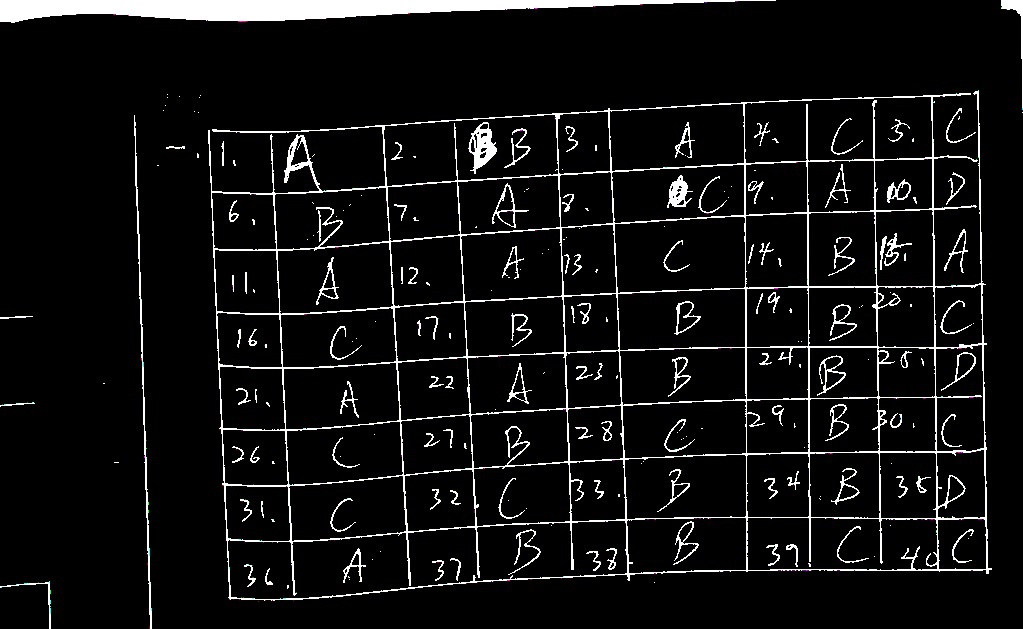 一.
1. A 2. B 3. A 4. C 5. C
6. B 7. A 8. C 9. A 10. D
11. A 12. A 13. C 14. B 15. A
16. C 17. B 18. B 19. B 20. C
21. A 22 A 23. B 24. B 25. D
26. C 27. B 28. C 29. B 30. C
31. C 32. C 33. B 34 B 35. D
36. A 37 B 38. B 39 C 40 C